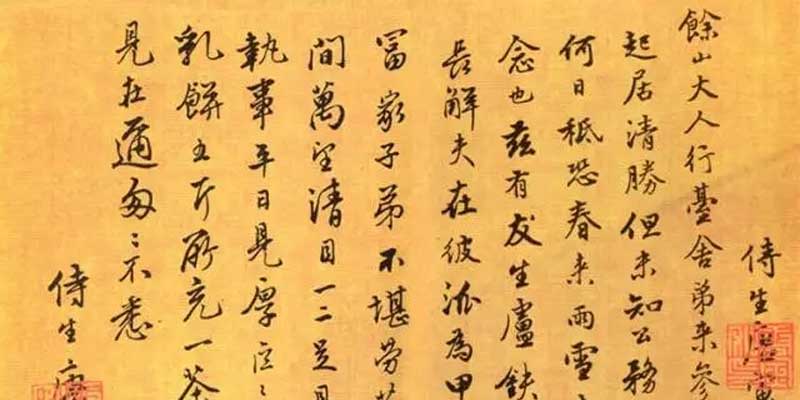 侍生唐寅
餘山大人行臺舍弟来參
起居清勝但未知公務
何日秪恐春来雨雪
念也茲有友生盧鉄
長解夫在彼派為甲
冨家子弟不堪劳
間萬望清目一二足見
執事平日見厚
乳餅五斤所充一茶
見在邇匆〻不悉
侍生唐